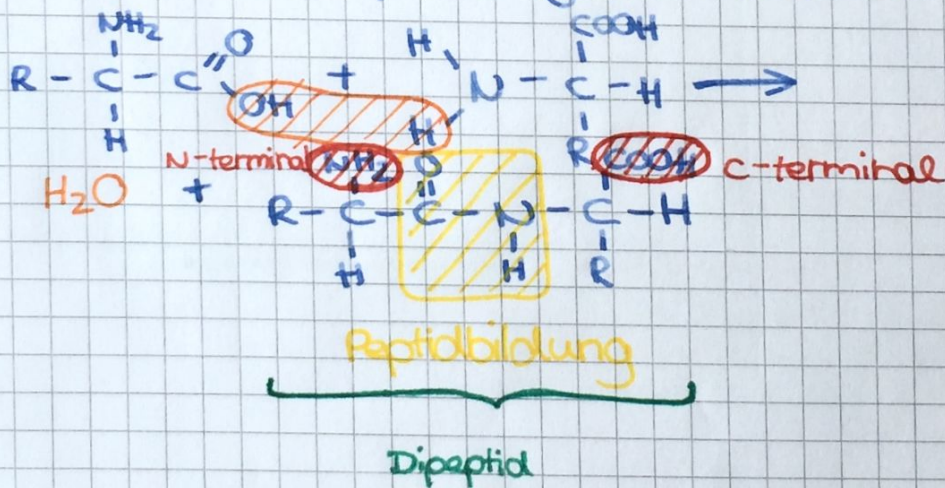 NH₂ COOH
O H
R - C - C + N - C - H →
OH H
H R
N-terminal NH₂ O COOH C-terminal
H₂O + R - C - C - N - C - H
H H R
Peptidbildung
Dipeptid